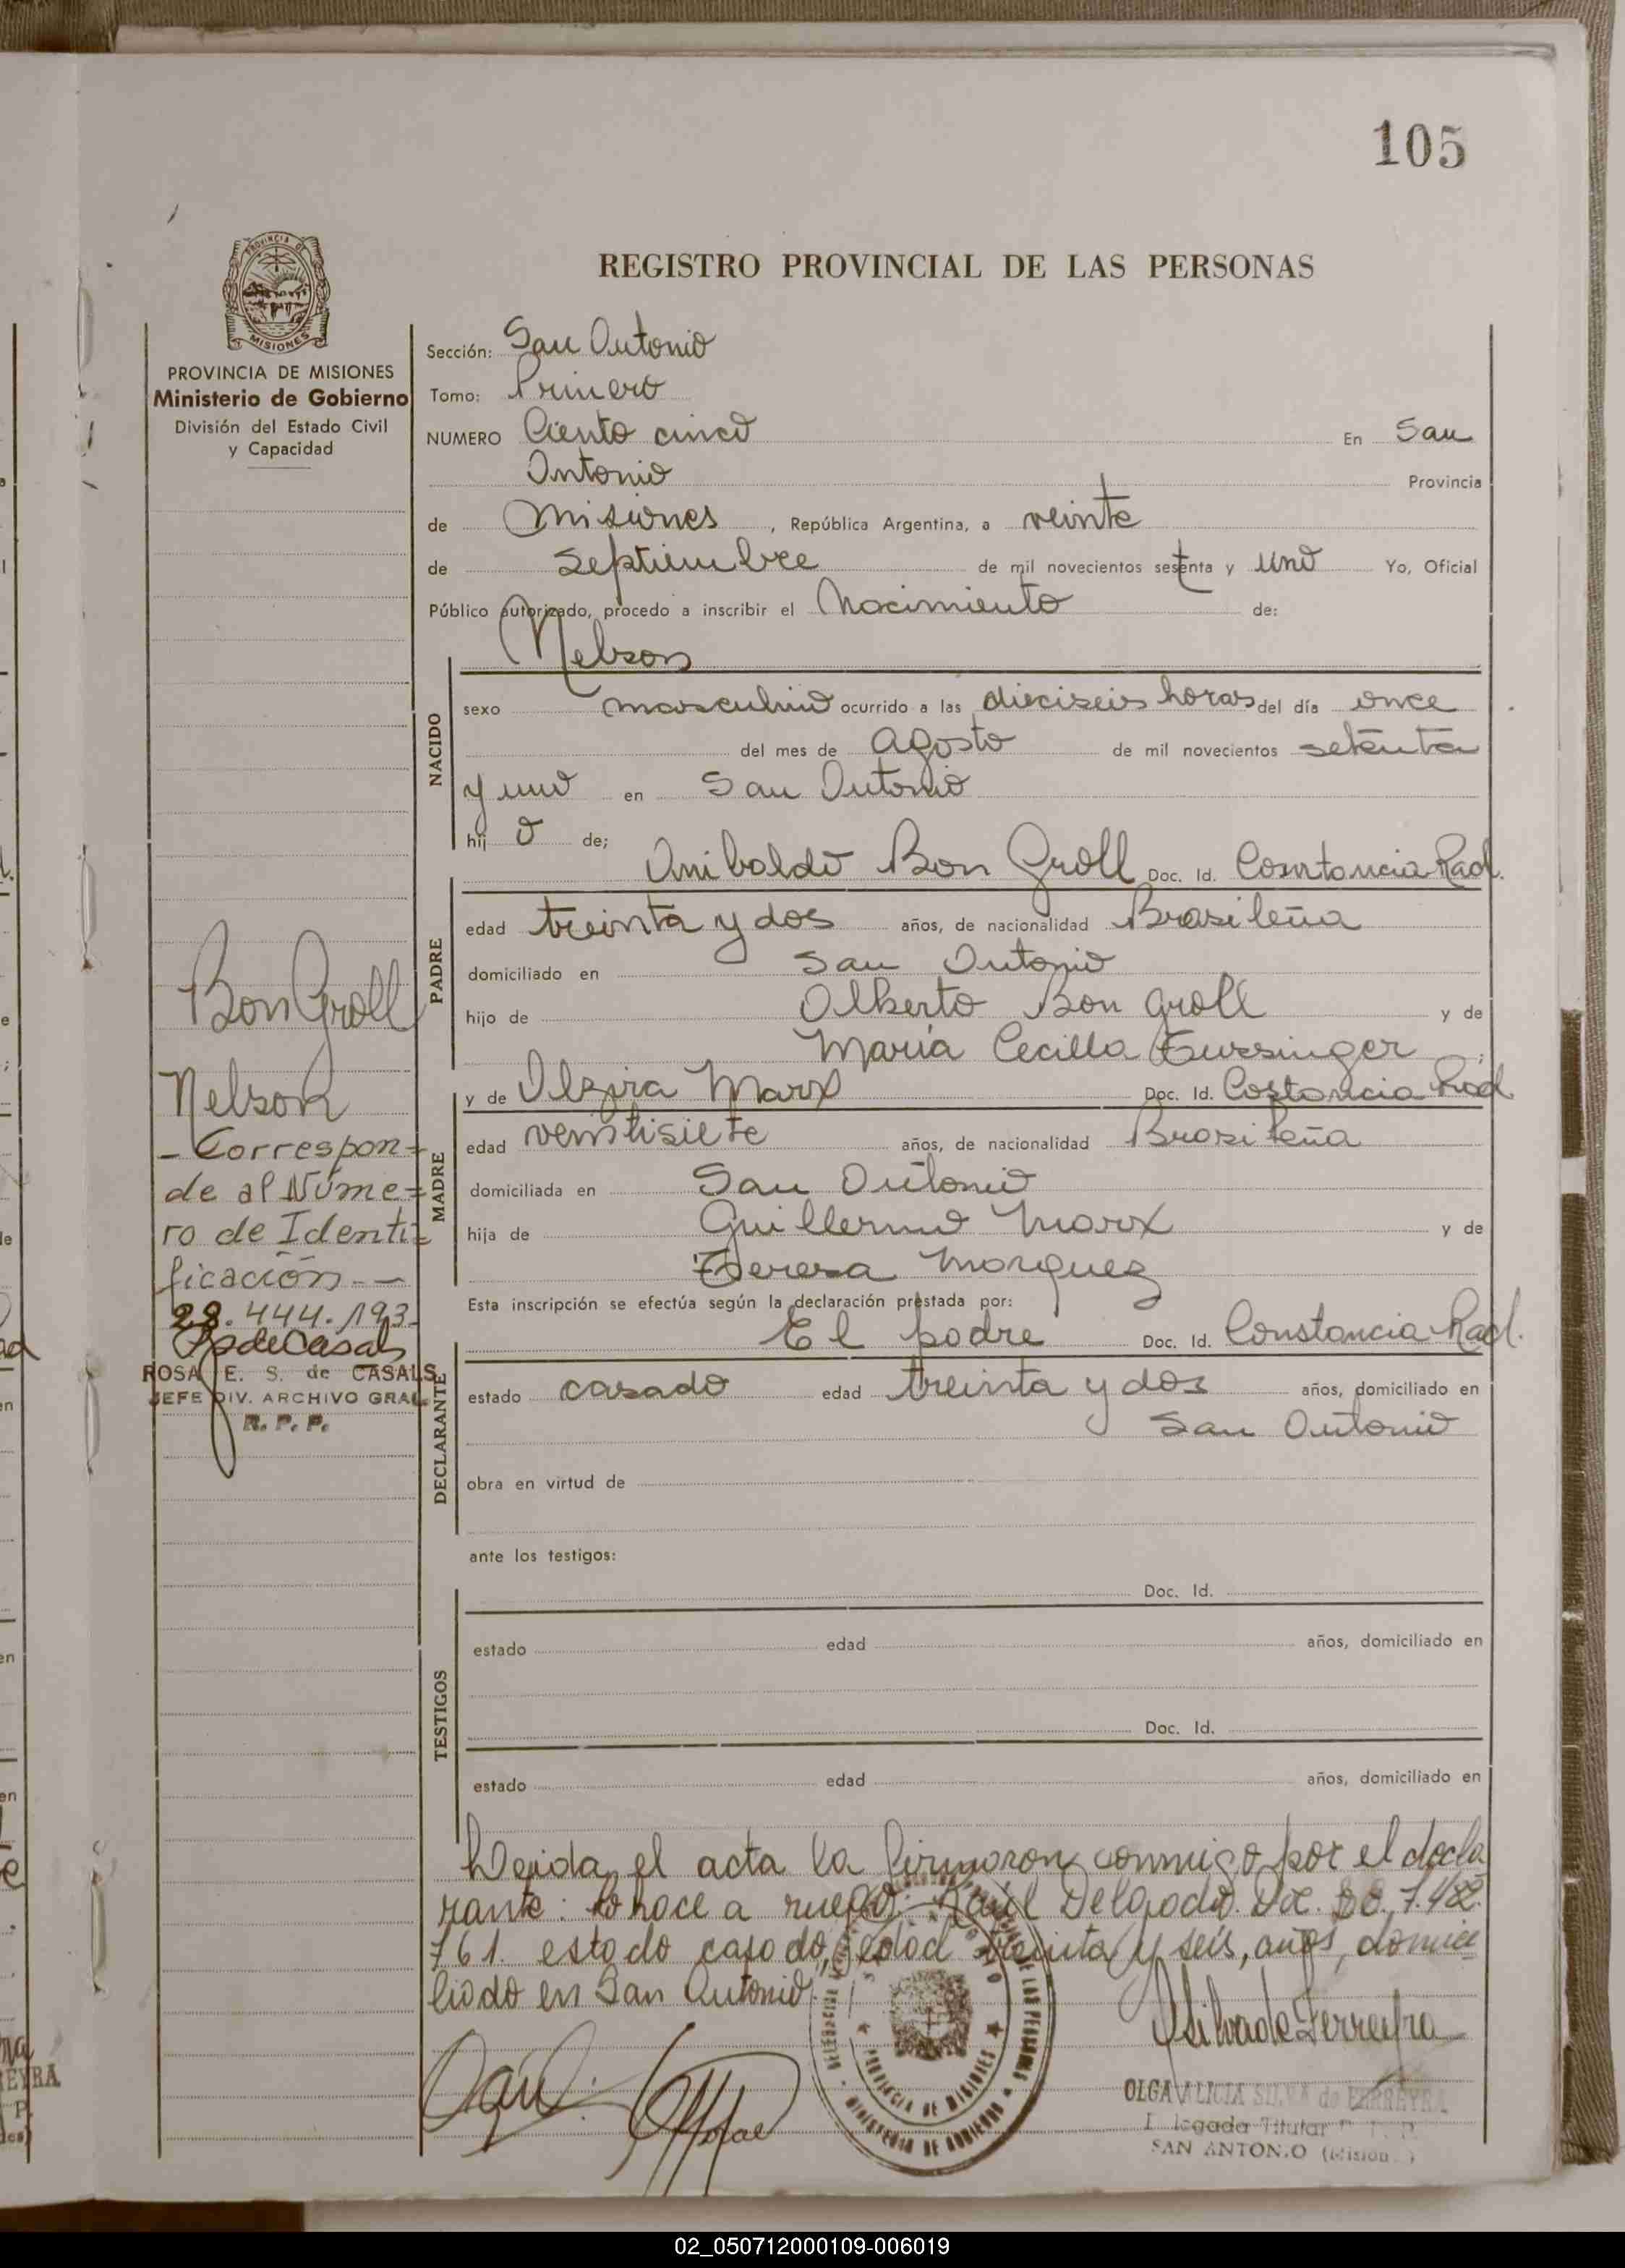 105
PROVINCIA DE
MISIONES
REGISTRO PROVINCIAL DE LAS PERSONAS
PROVINCIA DE MISIONES
Ministerio de Gobierno
División del Estado Civil
y Capacidad
Sección: San Antonio
Tomo: Primero
NUMERO Ciento cinco En San
Antonio Provincia
de Misiones, República Argentina, a veinte
de Septiembre de mil novecientos setenta y uno Yo, Oficial
Público autorizado, procedo a inscribir el Nacimiento de:
Nelson
NACIDO
sexo masculino ocurrido a las dieciseis horas del día once
del mes de agosto de mil novecientos setenta
y uno en San Antonio
hijo de;
Anibaldo Bon Groll Doc. Id. Constancia Rad.
PADRE
edad treinta y dos años, de nacionalidad Brasileña
domiciliado en San Antonio
hijo de Alberto Bon Groll y de
María Cecilla Eussinger;
y de Ilzira Marx Doc. Id. Costancia Rad
MADRE
edad veintisiete años, de nacionalidad Brasileña
domiciliada en San Antonio
hija de Guillermo Marx y de
Teresa Morquez
Esta inscripción se efectúa según la declaración prestada por:
El padre Doc. Id. Constancia Rad.
DECLARANTE
estado casado edad treinta y dos años, domiciliado en
San Antonio
obra en virtud de
ante los testigos:
Doc. Id.
TESTIGOS
estado edad años, domiciliado en
Doc. Id.
estado edad años, domiciliado en
Leida el acta la firmaron conmigo por el decla
rante: lo hace a ruego: Raúl Delgado. Doc. 7.482.
761. estado casado, edad treinta y seis, años, domici
liado en San Antonio.
Bon Groll
Nelson
- Correspon-
de al Núme-
ro de Identi-
ficación -
28.444.193
ROSA E. S. de CASALS
JEFE DIV. ARCHIVO GRAL.
R. P. P.
PROVINCIA DE MISIONES
MINISTERIO DE GOBIERNO
OLGA ALICIA SILVA de FERREYRA
Delegada Titular
SAN ANTONIO (Misiones)
02_050712000109-006019